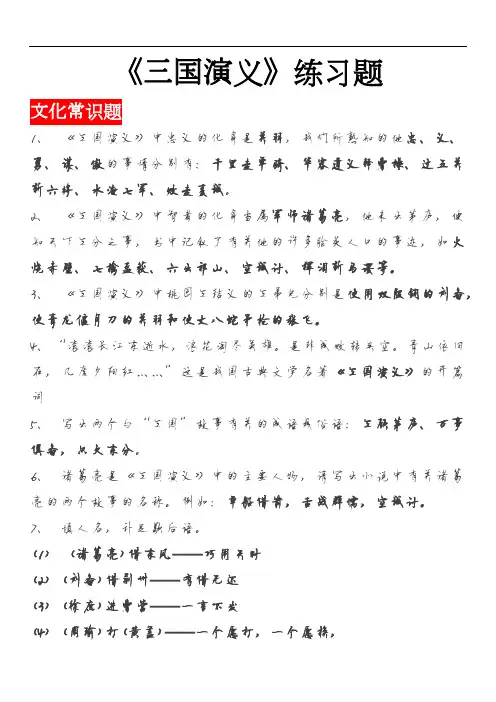 《三国演义》练习题
文化常识题
1、 《三国演义》中忠义的化身是关羽，我们所熟知的他忠、义、
勇、谋、傲的事情分别有：千里走单骑、华容道义释曹操、过五关
斩六将、水淹七军、败走麦城。
2、 《三国演义》中智者的化身当属军师诸葛亮，他未出茅庐，便
知天下三分之事，书中记叙了有关他的许多脍炙人口的事迹，如火
烧赤壁、七擒孟获、六出祁山、空城计、挥泪斩马谡等。
3、 《三国演义》中桃园三结义的三弟兄分别是使用双股锏的刘备，
使青龙偃月刀的关羽和使丈八蛇矛枪的张飞。
4、“滚滚长江东逝水，浪花淘尽英雄。是非成败转头空。青山依旧
在，几度夕阳红……”这是我国古典文学名著《三国演义》的开篇
词
5、 写出两个与“三国”故事有关的成语或俗语：三顾茅庐、万事
俱备，只欠东风。
6、 诸葛亮是《三国演义》中的主要人物，请写出小说中有关诸葛
亮的两个故事的名称。例如：草船借箭，舌战群儒，空城计。
7、 填人名，补足歇后语。
(1) (诸葛亮)借东风——巧用天时
(2) (刘备)借荆州——有借无还
(3) (徐庶)进曹营——一言不发
(4) (周瑜)打(黄盖)——一个愿打，一个愿挨，